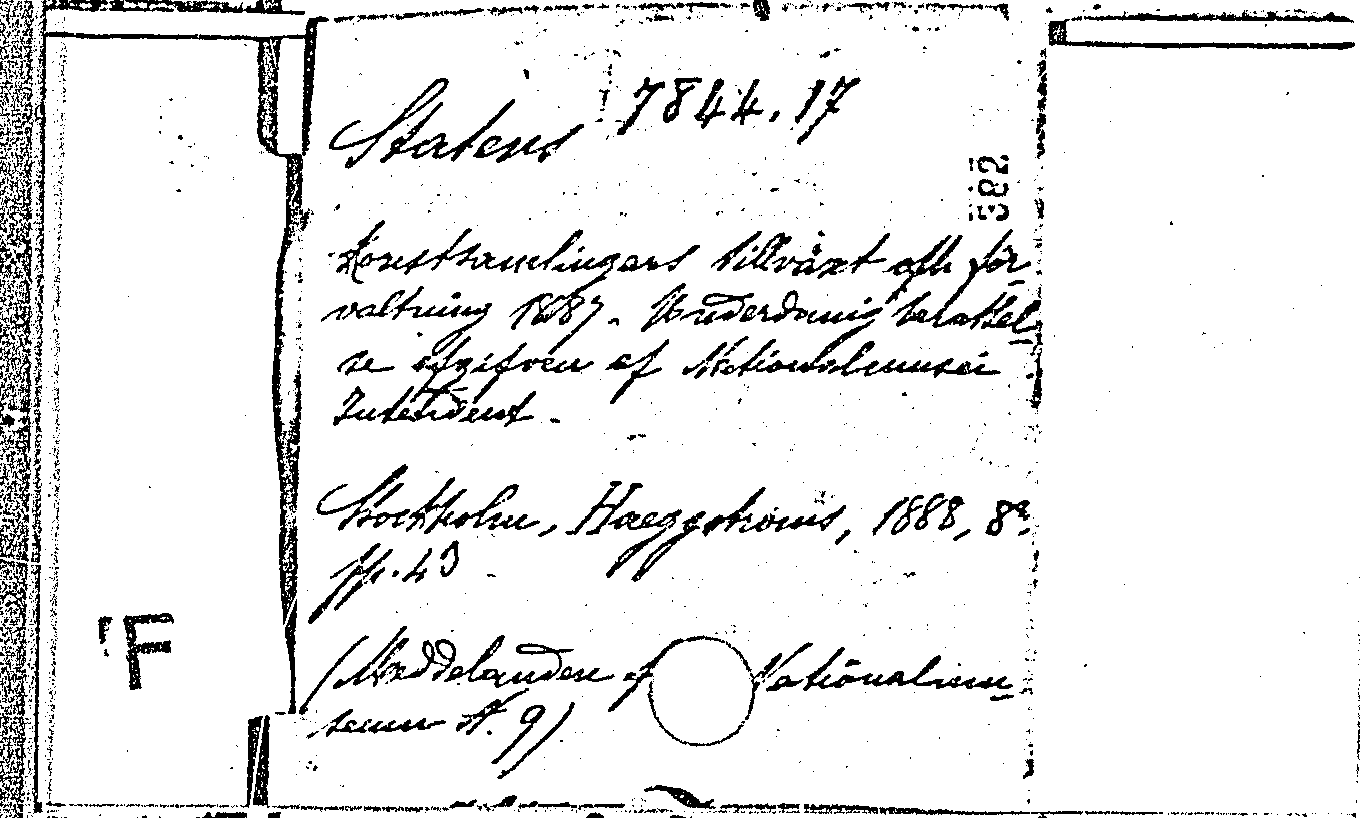 7844.17
Statens
382
Konstsamlingars tillväxt och för-
valtning 1887. Underdånig berättel-
se afgifven af Nationalmusei
Intendent.
Stockholm, Haeggströms, 1888, 8º.
pp. 43
(Meddelanden f Nationalmu-
seum N. 9)
F